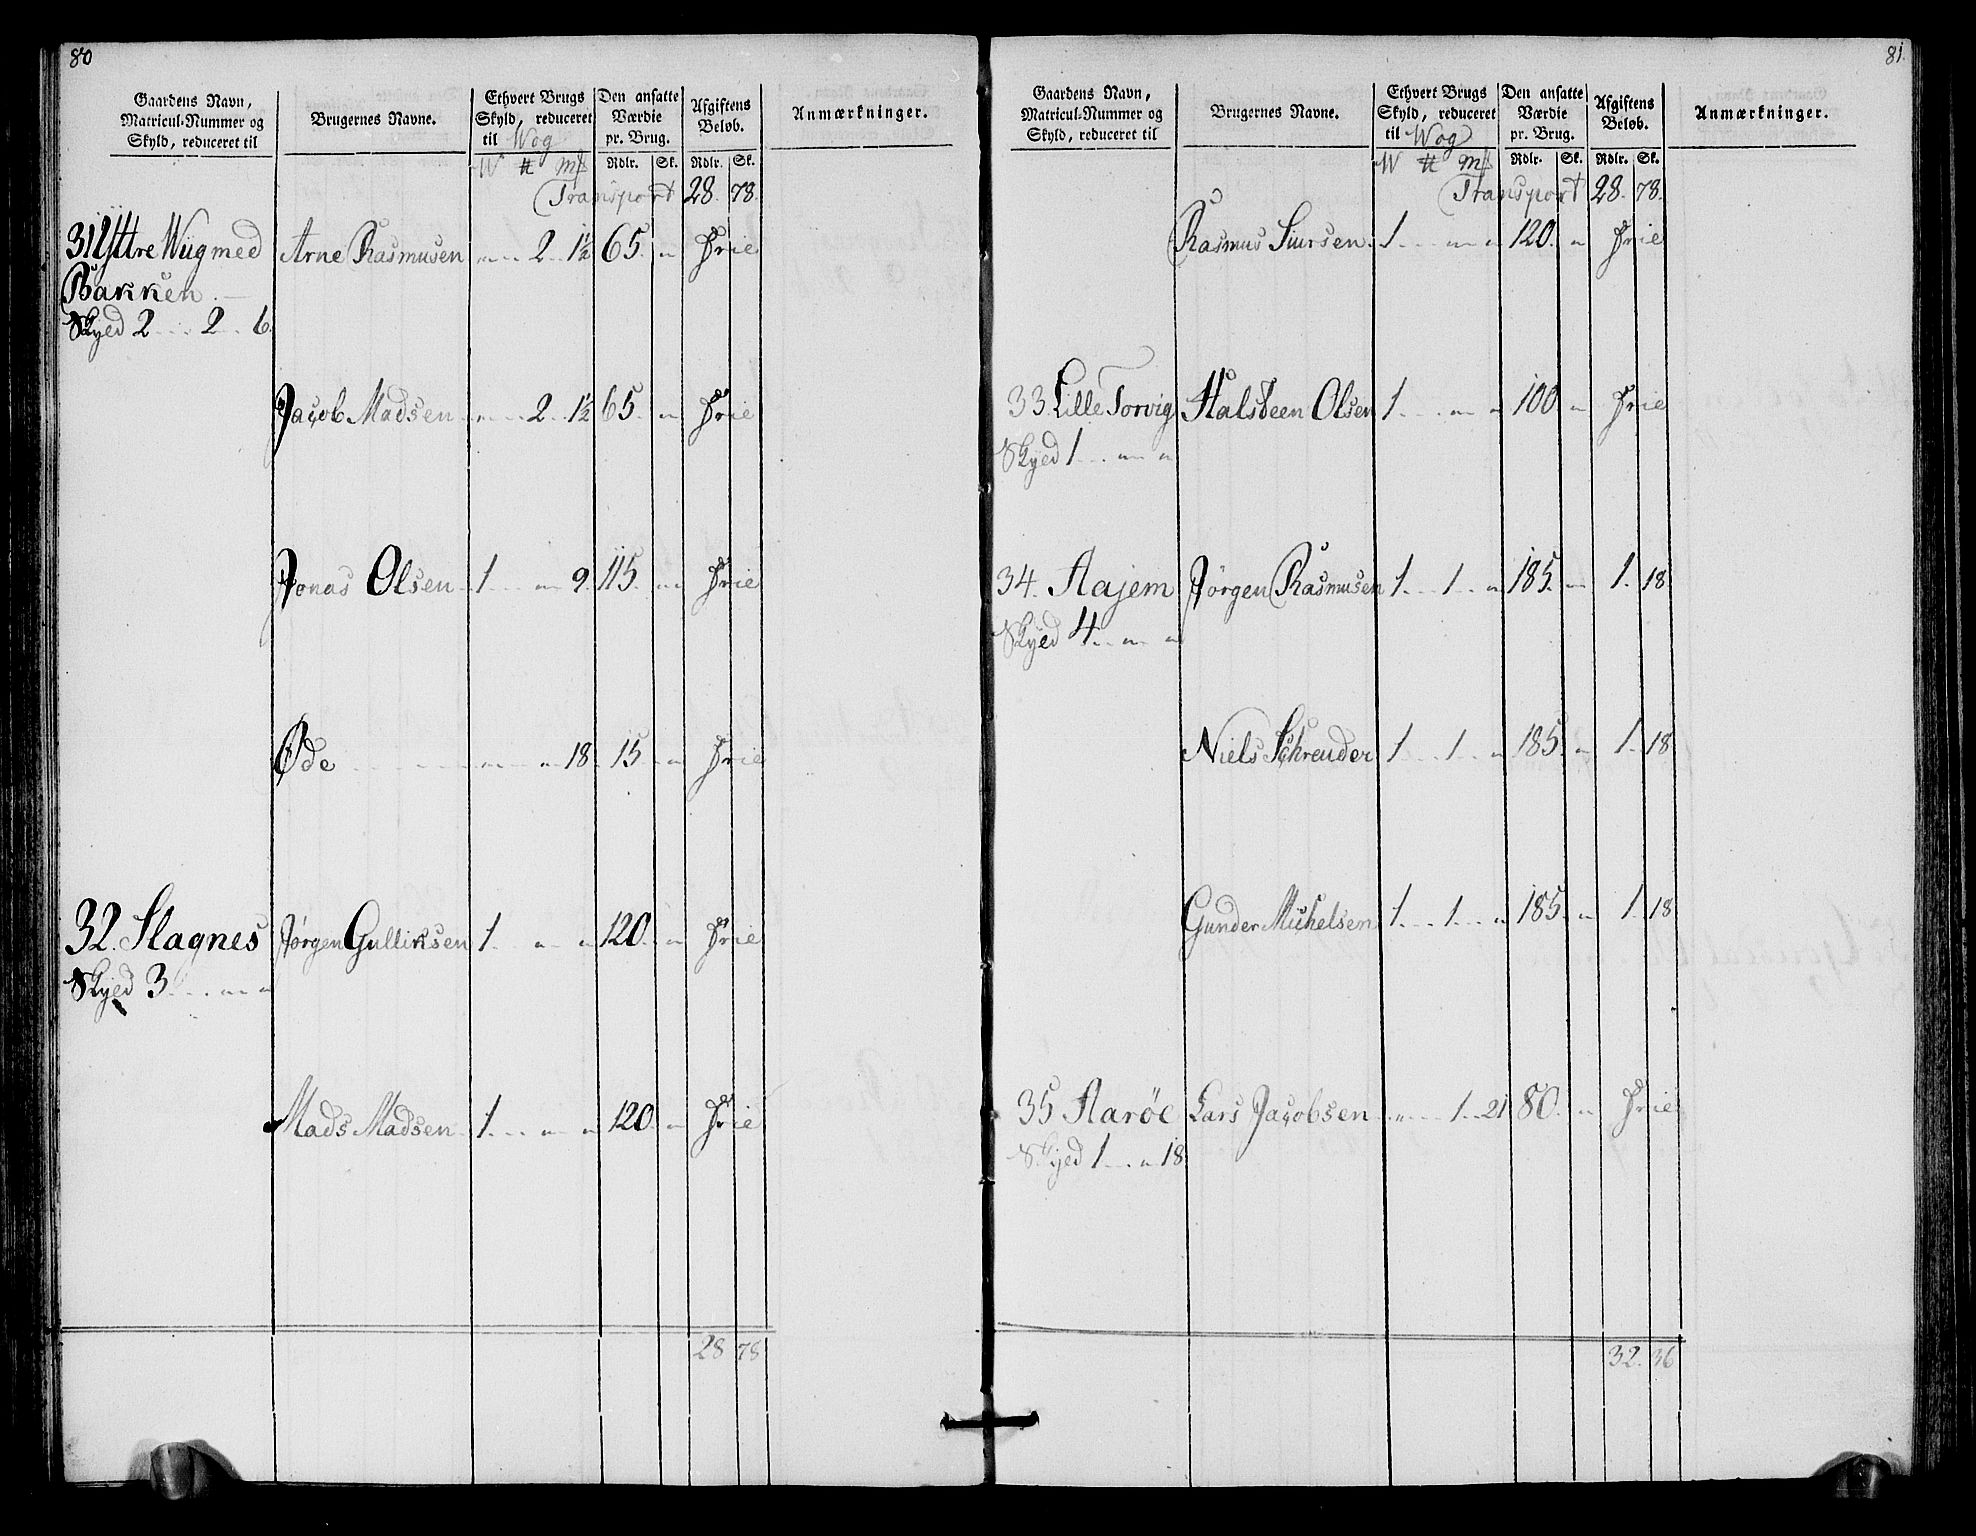 80
Gaardens Navn, Matricul-Nummer og Skyld, reduceret til
Brugernes Navne.
Ethvert Brugs Skyld, reduceret til Wog
Den ansatte Værdie pr. Brug.
Afgiftens Beløb.
Anmærkninger.
W ℔ mf Rdlr. Sk. Rdlr. Sk.
Transport 28. 78.
31 Yttre Wiig med Arne Rasmusen " 2 1½ 65. " Frie
Bakken.
Skyed 2 . . 2 . 6.
Jacob Madsen " 2 1½ 65. " Frie
Jonas Olsen 1 " 9. 115. " Frie
Øde " " 18. 15. " Frie
32. Slagnes Jørgen Gulliksen 1 " " 120. " Frie
Skyed 3 . . " "
Mads Madsen 1 " " 120. " Frie
28 78
81.
Gaardens Navn, Matricul-Nummer og Skyld, reduceret til
Brugernes Navne.
Ethvert Brugs Skyld, reduceret til Wog
Den ansatte Værdie pr. Brug.
Afgiftens Beløb.
Anmærkninger.
W ℔ mf Rdlr. Sk. Rdlr. Sk.
Transport 28. 78.
Rasmus Siursen 1 " " 120. " Frie
33. Lille Torvig Halsteen Olsen 1 " " 100 " Frie
Skyed 1 . . " "
34. Aajem Jörgen Rasmusen 1 1 " 185. " 1. 18
Skyed 4 . . " "
Niels Schreuder 1 1 " 185. " 1. 18
Gunder Michelsen 1 1 " 185. " 1. 18
35 Aarøe Lars Jacobsen " 1 21 80. " Frie
Skyed 1 . . " 18.
32. 36